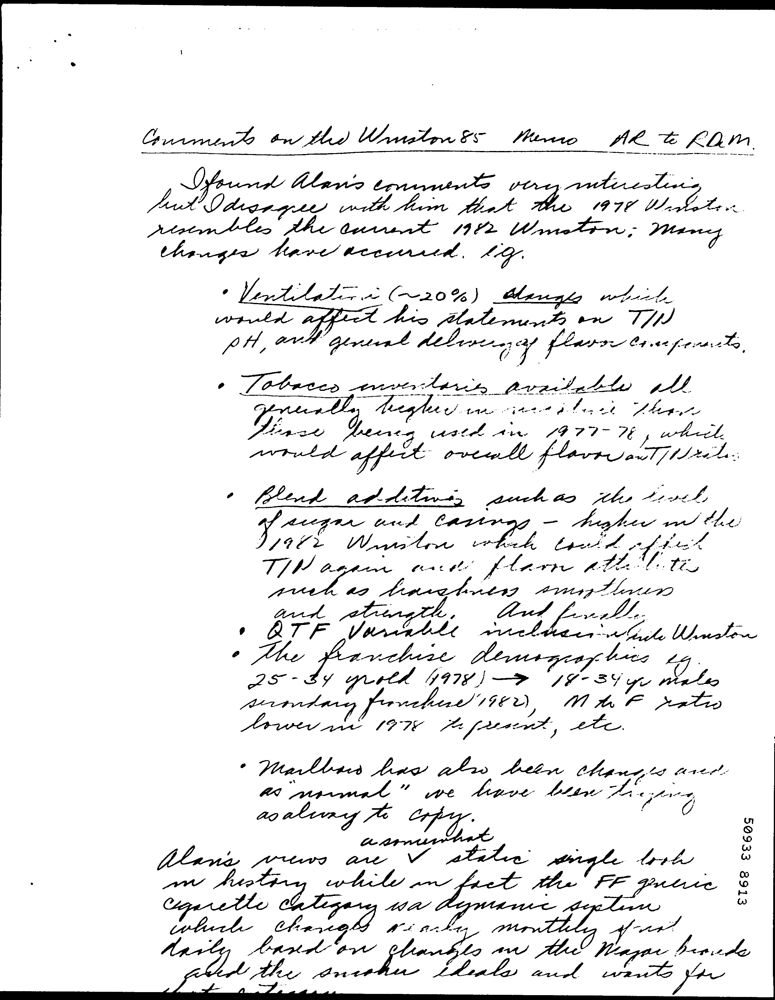 Comments on the Winston 85 Memo AR to RDM.
I found Alan's comments very interesting
but I disagree with him that the 1978 Winston
resembles the current 1982 Winston; Many
changes have occurred. eg.
• Ventilation (~20%) changes which
would affect his statements on T/N
pH, and general delivery of flavor components.
• Tobacco inventories available all
generally higher in than
those being used in 1977-78, which
would affect overall flavor and T/N ratio.
• Blend additives such as the level
of sugar and casings - higher in the
1982 Winston which could affect
T/N again and flavor attributes
such as harshness smoothness
and strength. And finally
• QTF Variable inclusion Winston
• The franchise demographics eg.
25-34 yr old (1978) → 18-34 yr males
secondary franchise (1982), M to F ratio
lower in 1978 to present, etc.
• Marlboro has also been changes and
as "normal" we have been trying
as alway to copy.
a somewhat
Alan's views are ✓ static single look
in history while in fact the FF generic
cigarette category is a dymanic system
which changes nearly monthly if not
daily based on changes in the Major brands
and the smoker ideals and wants for
that category
50933 8913